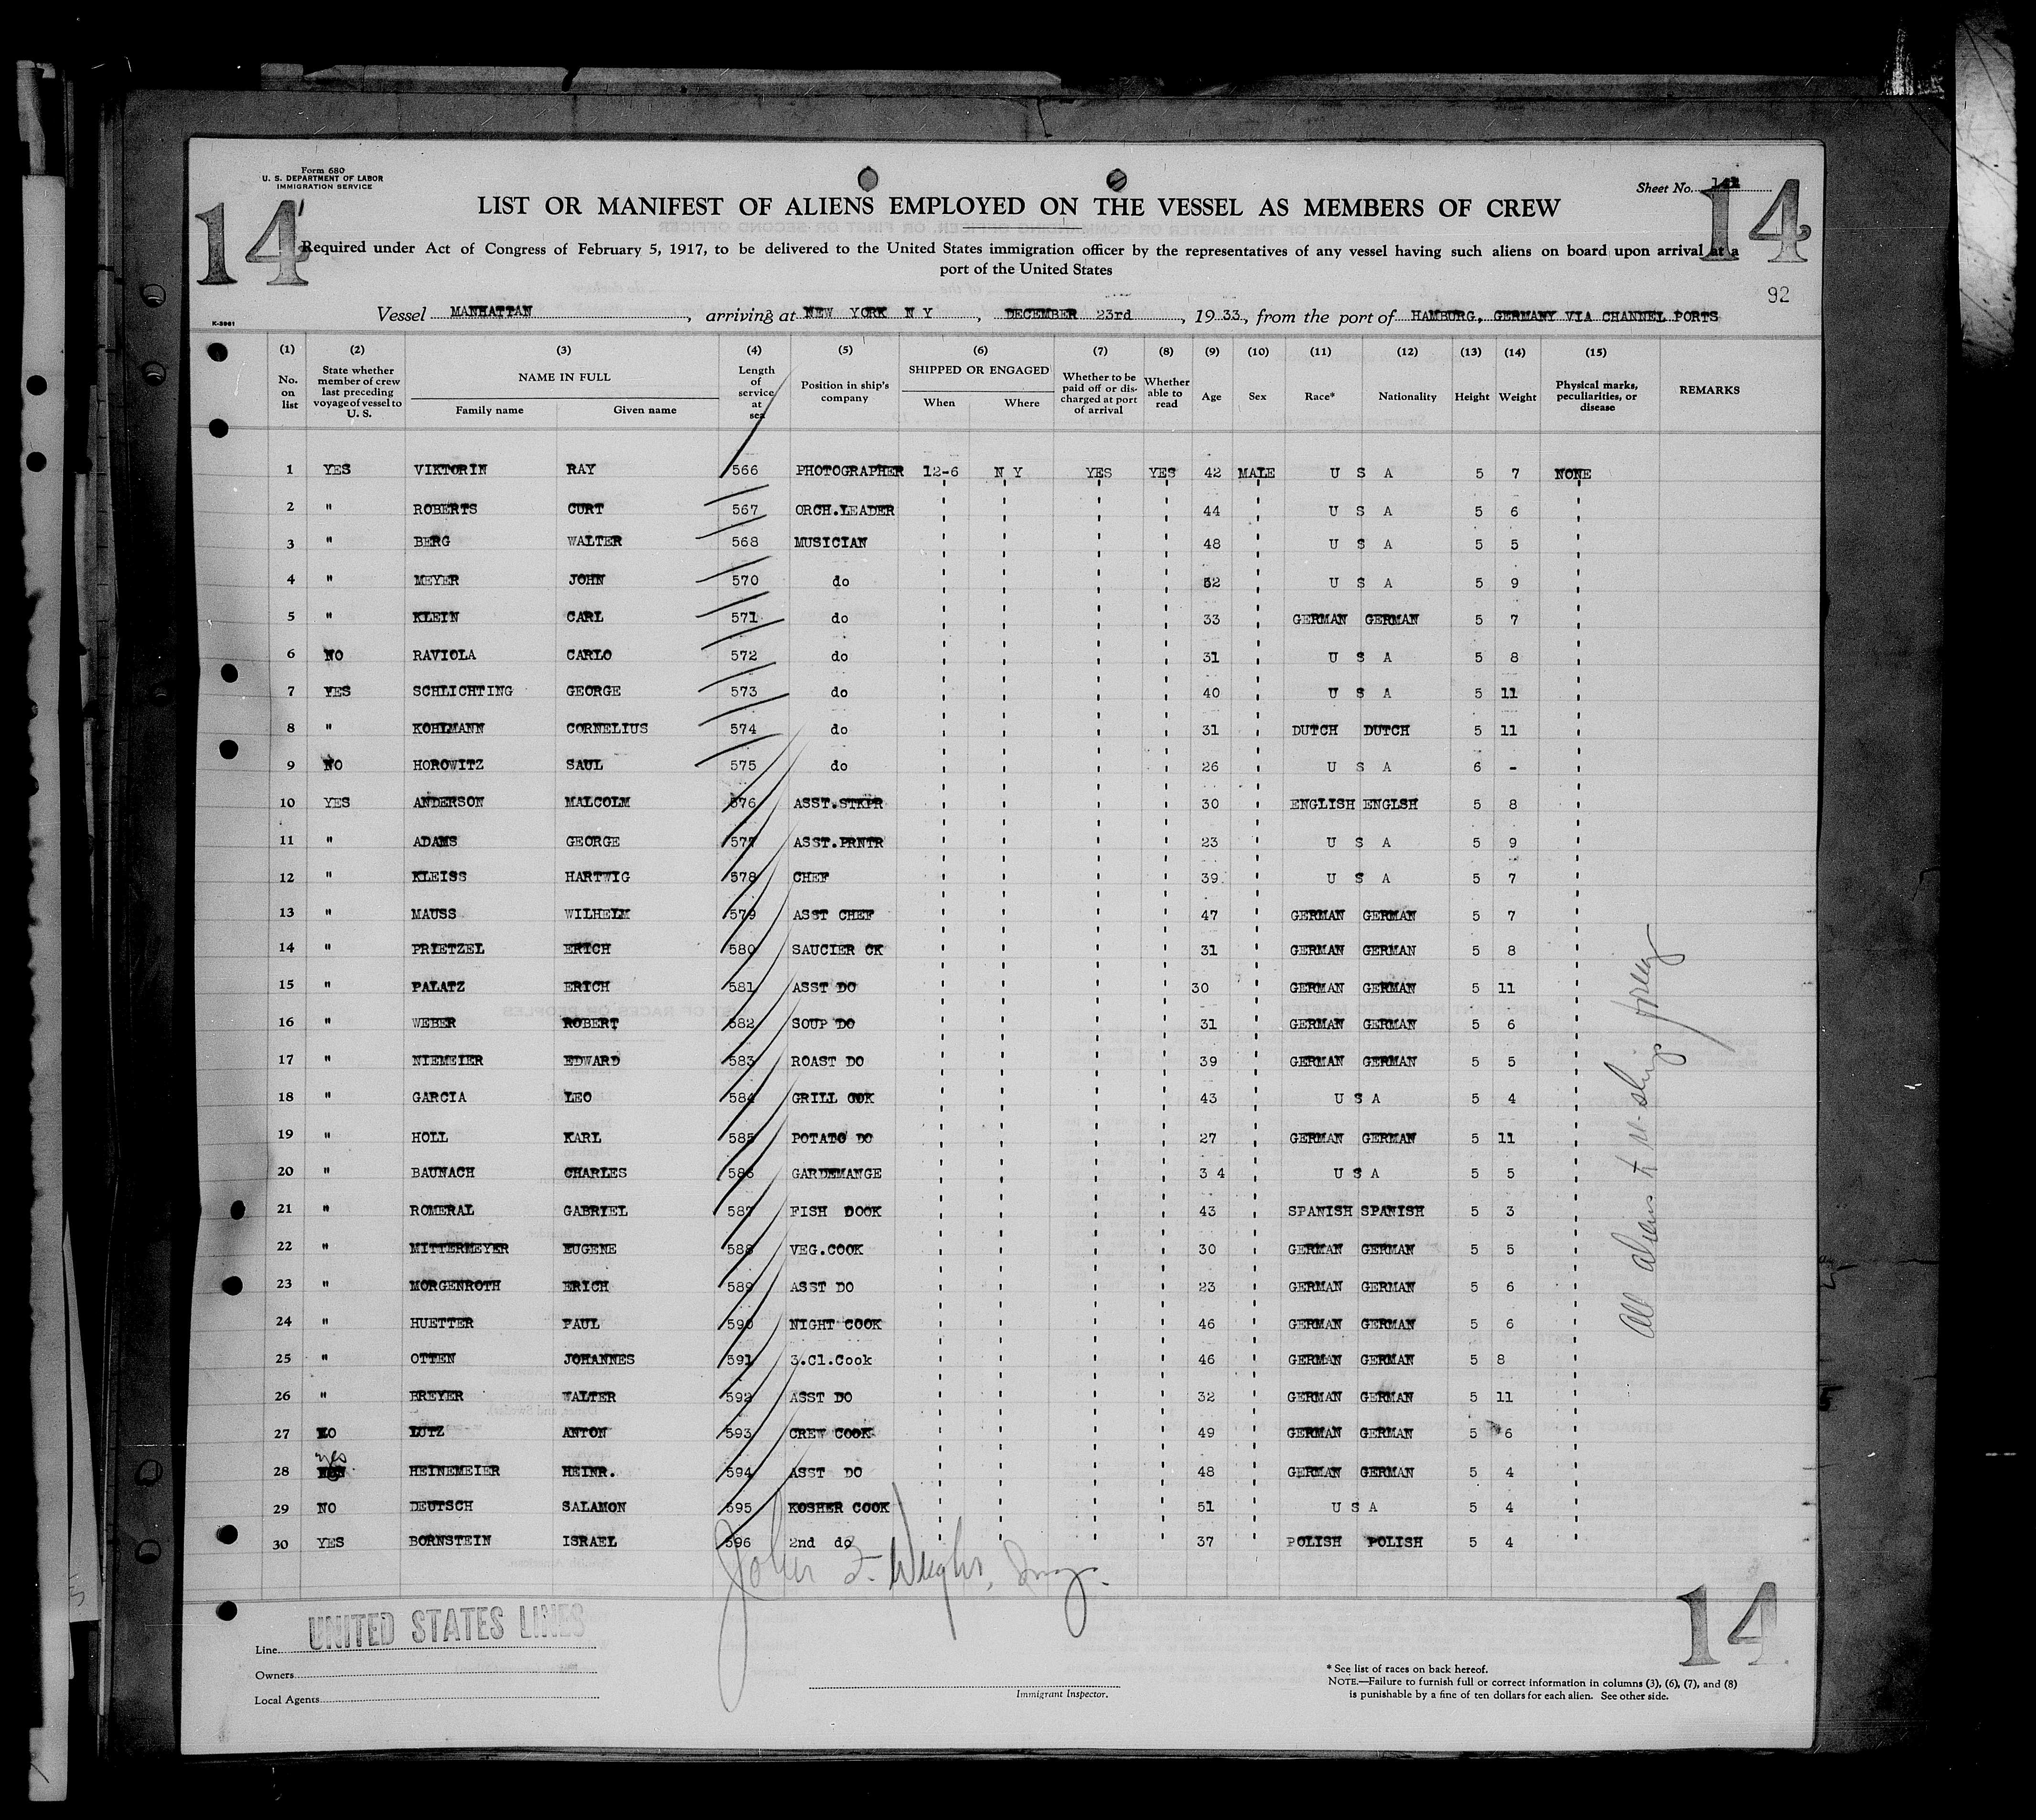 Form 680
U. S. DEPARTMENT OF LABOR
IMMIGRATION SERVICE
Sheet No.
14 14
LIST OR MANIFEST OF ALIENS EMPLOYED ON THE VESSEL AS MEMBERS OF CREW
Required under Act of Congress of February 5, 1917, to be delivered to the United States immigration officer by the representatives of any vessel having such aliens on board upon arrival at a
port of the United States
92
K-5961
Vessel MANHATTAN, arriving at NEW YORK N Y, DECEMBER 23rd, 1933, from the port of HAMBURG, GERMANY VIA CHANNEL PORTS
(1) (2) (3) (4) (5) (6) (7) (8) (9) (10) (11) (12) (13) (14) (15)
No. on list | State whether member of crew last preceding voyage of vessel to U. S. | NAME IN FULL Family name Given name | Length of service at sea | Position in ship's company | SHIPPED OR ENGAGED When Where | Whether to be paid off or discharged at port of arrival | Whether able to read | Age | Sex | Race* | Nationality | Height | Weight | Physical marks, peculiarities, or disease | REMARKS
1 YES VIKTORIN RAY 566 PHOTOGRAPHER 12-6 N Y YES YES 42 MALE U S A 5 7 NONE
2 " ROBERTS CURT 567 ORCH.LEADER 44 U S A 5 6
3 " BERG WALTER 568 MUSICIAN 48 U S A 5 5
4 " MEYER JOHN 570 do 52 U S A 5 9
5 " KLEIN CARL 571 do 33 GERMAN GERMAN 5 7
6 NO RAVIOLA CARLO 572 do 31 U S A 5 8
7 YES SCHLICHTING GEORGE 573 do 40 U S A 5 11
8 " KOHLMANN CORNELIUS 574 do 31 DUTCH DUTCH 5 11
9 NO HOROWITZ SAUL 575 do 26 U S A 6 -
10 YES ANDERSON MALCOLM 576 ASST.STKPR 30 ENGLISH ENGLSH 5 8
11 " ADAMS GEORGE 577 ASST.PRNTR 23 U S A 5 9
12 " KLEISS HARTWIG 578 CHEF 39 U S A 5 7
13 " MAUSS WILHELM 579 ASST CHEF 47 GERMAN GERMAN 5 7
14 " PRIETZEL ERICH 580 SAUCIER CK 31 GERMAN GERMAN 5 8
15 " PALATZ ERICH 581 ASST DO 30 GERMAN GERMAN 5 11
16 " WEBER ROBERT 582 SOUP DO 31 GERMAN GERMAN 5 6
17 " NIEMEIER EDWARD 583 ROAST DO 39 GERMAN GERMAN 5 5
18 " GARCIA LEO 584 GRILL OOK 43 U S A 5 4
19 " HOLL KARL 585 POTATO DO 27 GERMAN GERMAN 5 11
20 " BAUNACH CHARLES 586 GARDEMANGE 3 4 U S A 5 5
21 " ROMERAL GABRIEL 587 FISH DOOK 43 SPANISH SPANISH 5 3
22 " MITTERMEYER EUGENE 588 VEG.COOK 30 GERMAN GERMAN 5 5
23 " MORGENROTH ERICH 589 ASST DO 23 GERMAN GERMAN 5 6
24 " HUETTER PAUL 590 NIGHT COOK 46 GERMAN GERMAN 5 6
25 " OTTEN JOHANNES 591 3.Cl.Cook 46 GERMAN GERMAN 5 8
26 " BREYER WALTER 592 ASST DO 32 GERMAN GERMAN 5 11
27 LUTZ ANTON 593 CREW COOK 49 GERMAN GERMAN 5 6
28 yes HEINEMEIER HEINR. 594 ASST DO 48 GERMAN GERMAN 5 4
29 NO DEUTSCH SALAMON 595 KOSHER COOK 51 U S A 5 4
30 YES BORNSTEIN ISRAEL 596 2nd do 37 POLISH POLISH 5 4
All aliens
John F. Wright, Insp.
Line UNITED STATES LINES
Owners
Local Agents
Immigrant Inspector.
* See list of races on back hereof.
NOTE.—Failure to furnish full or correct information in columns (3), (6), (7), and (8)
is punishable by a fine of ten dollars for each alien. See other side.
14